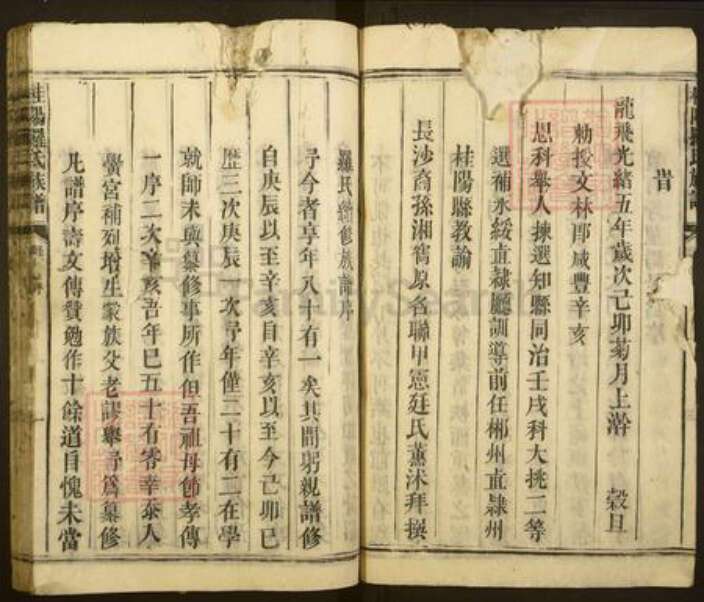 旹
龍飛光緒五年歲次己卯菊月上澣　穀旦
勅授文林郎咸豐辛亥
恩科舉人揀選知縣同治壬戌科大挑二等
選補永綏直隸廳訓導前任郴州直隸州
桂陽縣教諭
長沙裔孫湘賓原名聯甲憲廷氏薰沐拜撰
羅氏續修族譜序
予今者享年八十有一矣其間躬親譜修
自庚辰以至辛亥自辛亥以至今己卯已
歷三次庚辰一次予年僅二十有二在學
就師未與纂修事所作但吾祖母節孝傳
一序二次辛亥吾年已五十有零幸泰入
黌宮補列增生蒙族父老謬舉予爲纂修
凡譜序壽文傳贊勉作十餘道自愧未當
桂陽羅氏族譜